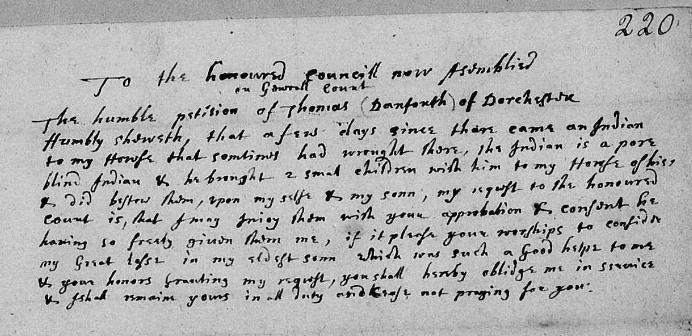 220
To the honoured Councill now Asemblied
in Generall Court
The humble petision of Thomas (Danforth) of Dorchester
Humbly sheweth, that a few days since thare came an Indian
to my Howse that somtimes had wrought there, the Indian is a pore
blind Indian & he brought 2 smal children with him to my Howse of his
& did bestow them, upon my selfe & my sonn, my request to the honoured
Court is, that I may Injoy them with your approbation & consent he
having so freely given them me, if it please your worships to considder
my Great losse in my eldest sonn which was such a good helpe to me
& your honors Granting my request, you shall hereby oblidge me in service
& I shal remaine yours in all duty and cease not praying for you.